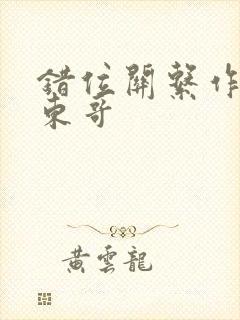 錯位關系作
東哥
黃雲龍